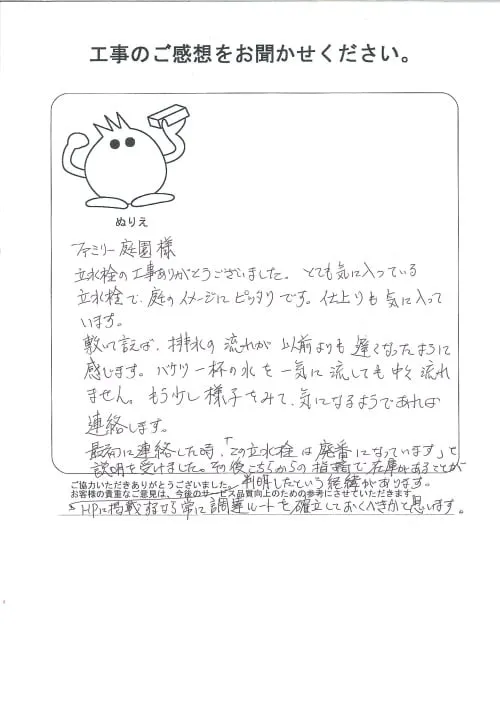 工事のご感想をお聞かせください。
ぬりえ
ファミリー庭園様
立水栓の工事ありがとうございました。とても気に入っている
立水栓で、庭のイメージにピッタリです。仕上りも気に入って
います。
敷いて言えば、排水の流れが以前よりも遅くなったように
感じます。バケツ一杯の水を一気に流しても中々流れ
ません。もう少し様子をみて、気になるようであれば
連絡します。
最初に連絡した時、「この立水栓は廃番になっています」と
説明を受けました。その後こちらからの指摘で在庫があることが
ご協力いただきありがとうございました。判明したという経緯があります。
お客様の貴重なご意見は、今後のサービス品質向上のための参考にさせていただきます
HPに掲載するなら常に調達ルートを確立しておくべきかと思います。